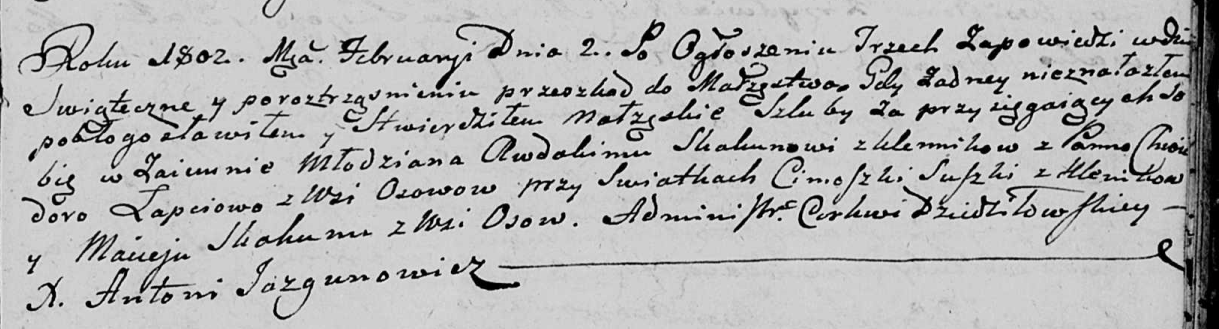 Roku 1802. Mca. Februaryi Dnia 2. Po Ogłoszeniu Trzech Zapowiedzi w dni
Swiąteczne y poroztrząsnieniu przeszkod do Małżęstwa, Gdy żadney nieznalazłem
pobłogosławiłem y Stwierdziłem Małżęskie Szluby za przysięgaiących So
bie w Zaimnie Młodziana Awdakima Skakunowi z Klennikow z Panno Chwie
doro Łapciowo z Wsi Osowow przy Swiatkach Cimoszki Suszki z Klenikow
y Macieju Skakunu z Wsi Osow. Administr. Cerkwi Dziedziłowskiey
X. Antoni Jazgunowicz